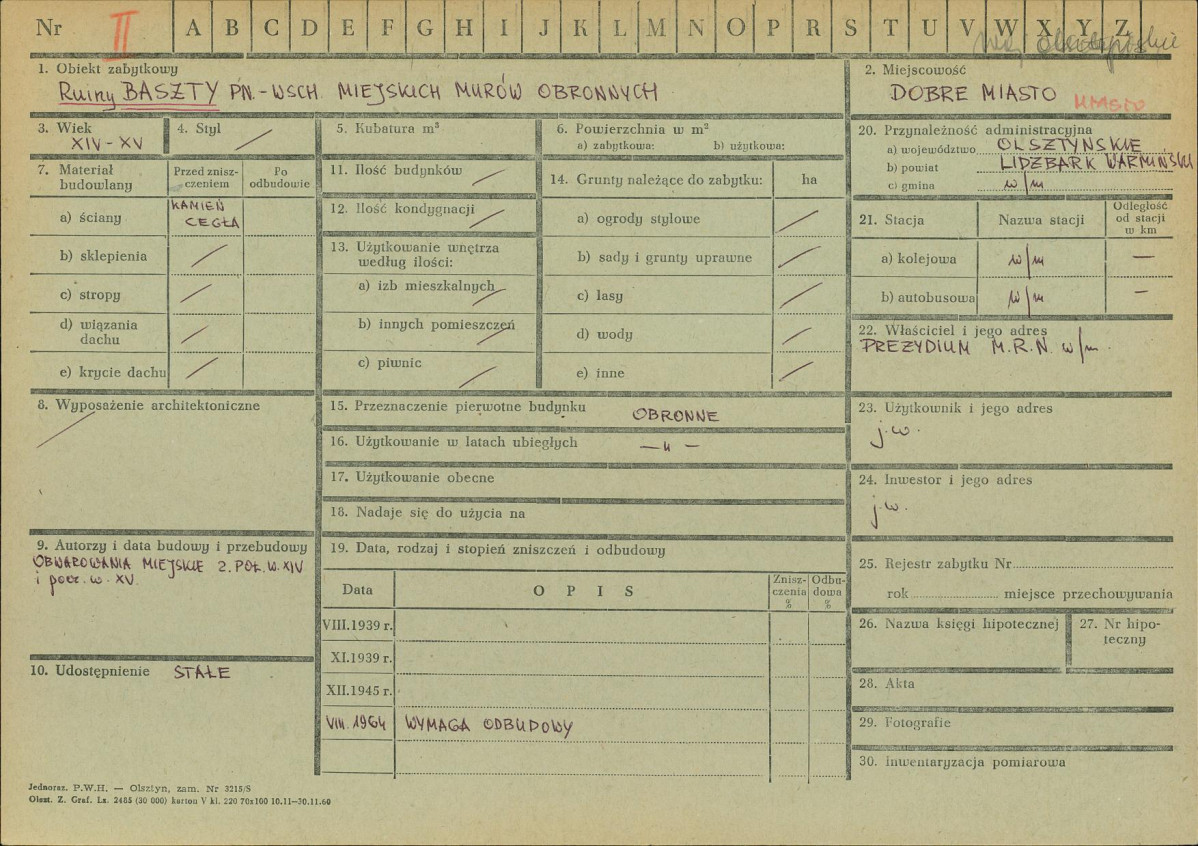 Nr II A B C D E F G H I J K L M N O P R S T U V W X Y Z
Woj. Olsztyńskie
1. Obiekt zabytkowy
Ruiny BASZTY PN.-WSCH. MIEJSKICH MURÓW OBRONNYCH
2. Miejscowość
DOBRE MIASTO
MIASTO
3. Wiek
XIV - XV
4. Styl
5. Kubatura m³
6. Powierzchnia w m²
a) zabytkowa: b) użytkowa:
7. Materiał budowlany
Przed znisz-
czeniem
Po
odbudowie
a) ściany
KAMIEŃ
CEGŁA
b) sklepienia
c) stropy
d) wiązania
dachu
e) krycie dachu
8. Wyposażenie architektoniczne
9. Autorzy i data budowy i przebudowy
OBWAROWANIA MIEJSKIE 2. POŁ. W. XIV
i pocz. w. XV.
10. Udostępnienie STAŁE
11. Ilość budynków
12. Ilość kondygnacji
13. Użytkowanie wnętrza
według ilości:
a) izb mieszkalnych
b) innych pomieszczeń
c) piwnic
14. Grunty należące do zabytku: ha
a) ogrody stylowe
b) sady i grunty uprawne
c) lasy
d) wody
e) inne
15. Przeznaczenie pierwotne budynku OBRONNE
16. Użytkowanie w latach ubiegłych — „ —
17. Użytkowanie obecne
18. Nadaje się do użycia na
19. Data, rodzaj i stopień zniszczeń i odbudowy
Data O P I S
Znisz-
czenia
%
Odbu-
dowa
%
VIII.1939 r.
XI.1939 r.
XII.1945 r.
VIII. 1964 WYMAGA ODBUDOWY
20. Przynależność administracyjna
a) województwo OLSZTYŃSKIE
b) powiat LIDZBARK WARMIŃSKI
c) gmina w/m
21. Stacja Nazwa stacji
Odległość
od stacji
w km
a) kolejowa w/m —
b) autobusowa w/m —
22. Właściciel i jego adres
PREZYDIUM M.R.N. w/m.
23. Użytkownik i jego adres
j.w.
24. Inwestor i jego adres
j.w.
25. Rejestr zabytku Nr
rok miejsce przechowywania
26. Nazwa księgi hipotecznej
27. Nr hipo-
teczny
28. Akta
29. Fotografie
30. Inwentaryzacja pomiarowa
Jednoraz. P.W.H. — Olsztyn, zam. Nr 3215/S
Olszt. Z. Graf. Lz. 2485 (30 000) karton V kl. 220 70x100 10.11—30.11.60